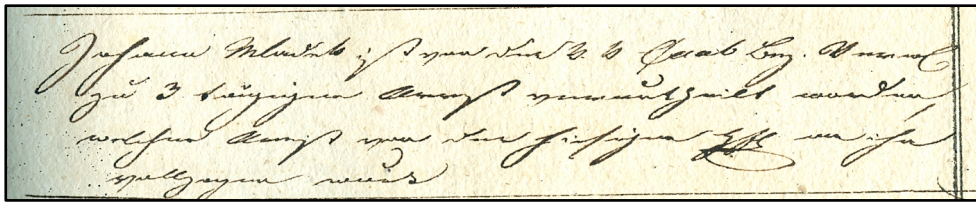 Johann Mladek ist von dem k. k. Bez.
zu 3 tägigen Arrest verurtheilt worden,
welcher Arrest von dem hiesigen an ihm
vollzogen wurde